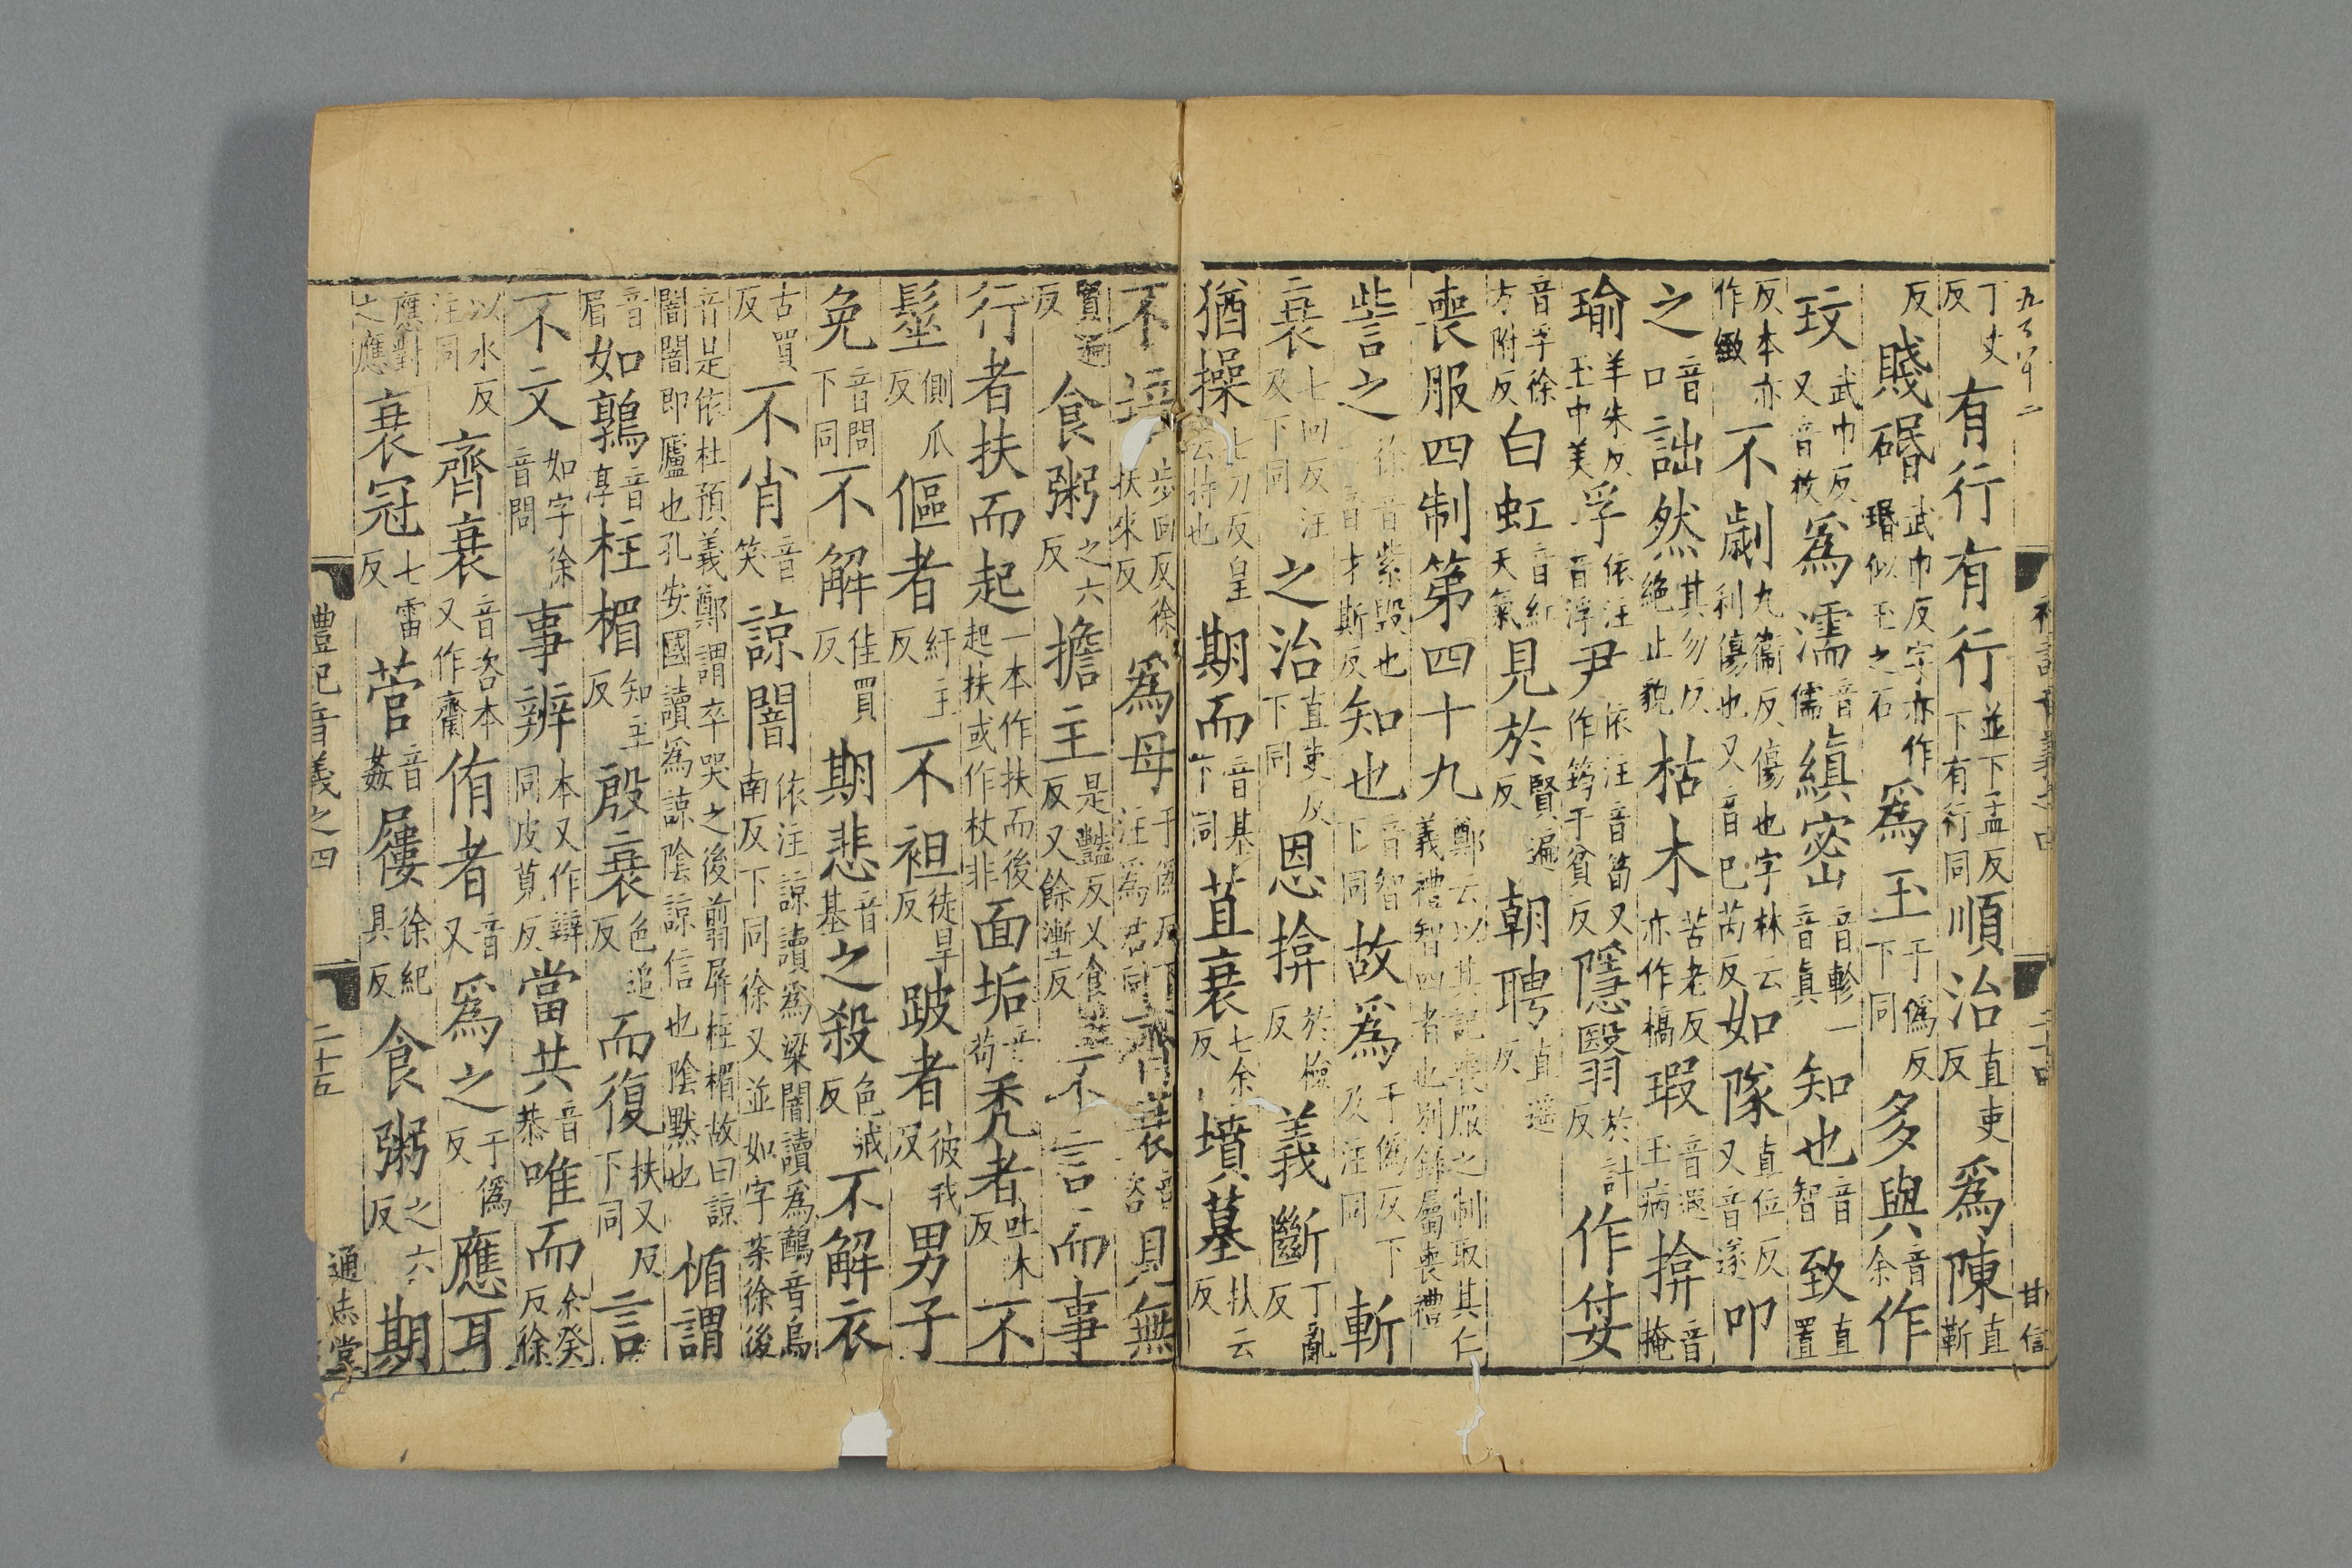 丁丈反有行有行並下孟反下有行同順治直吏反爲陳直靳
反賤碈武巾反字亦作瑉似玉之石爲玉于僞反下同多與音余作
玟武巾反又音枚爲濡音儒縝密音軫一音眞知也音智致直置
反本亦作緻不劌九衞反傷也字林云利傷也又音已芮反如隊直位反又音遂叩
之音口詘然其勿反絕止貌枯木苦老反亦作槁瑕音遐玉病揜音掩
瑜羊朱反玉中美孚依注音浮尹依注音筍又作筠于貧反隱翳於計反作姇
音孚徐方附反白虹音紅天氣見於賢遍反朝聘直遥反
喪服四制第四十九鄭云以其記喪服之制取其仁義禮智四者也別錄屬喪禮
訾之徐音紫毀也一音才斯反知也音智下同故爲于僞反下及注同斬
衰七回反注及下同之治直吏反下同恩揜於檢反義斷丁亂反
猶操七刀反皇云持也期而音基下同苴衰七余反墳墓扶云反
不培步回反徐扶來反爲母于僞反下注爲君同齊衰音咨見無
賢遍反食粥之六反擔主是豔反又食豔反又餘漸反不言而事
行者扶而起一本作扶而後起扶或作杖非面垢音苟禿者吐木反不
髽側爪反傴者紆主反不袒徒旱反跛者彼我反男子
免音問下同不解佳買反期悲音基之殺色戒反不解衣
古買反不肖音笑諒闇依注諒讀爲梁闇讀爲鵪音烏南反下同徐又並如字案徐後
音是依杜預義鄭謂卒哭之後翦屏柱楣故曰諒闇闇即廬也孔安國讀爲諒陰諒信也陰默也楯謂
音眉如鶉音淳柱楣知主反殷衰色追反而復扶又反下同言
不文如字徐音問事辨本又作辯同皮莧反當共音恭唯而余癸反徐
以水反注同齊衰音咨本又作齋侑者音又爲之于僞反應耳
應對之應衰冠七雷反菅音姦屨徐紀具反食粥之六反期
禮記音義之四 二十五 通志堂